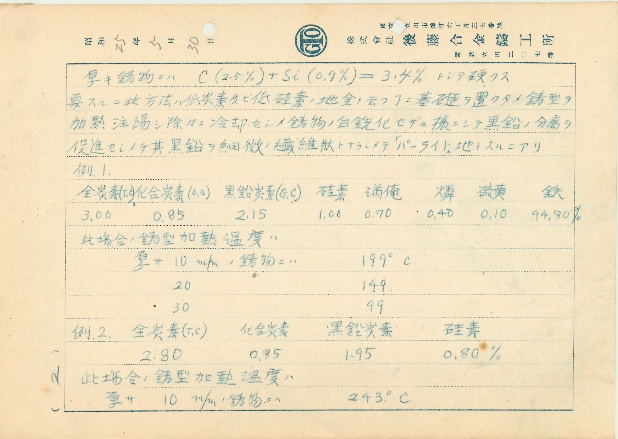 昭和25年5月30日
GTO
株式會社 後藤合金鑄工所
厚キ鋳物ニハ C(2.5%)+Si(0.9%)=3.4% トシテ硬クス
要スルニ此方法ハ低炭素及ビ低硅素ノ地金ト云フ丁ニ基礎ヲ置クタメ鋳型ヲ
加熱注湯シ除々ニ冷却セシメ鋳物ノ白銑化セザル様ニシテ黒鉛ノ分離ヲ
促進セシメテ其黒鉛ヲ細微ノ繊維状トナラシメテ「パーライト」地トスルニアリ
例.1.
全炭素(T.C) 化合炭素(C.C) 黒鉛炭素(G.C) 硅素 満俺 燐 硫黄 鉄
3.00 0.85 2.15 1.00 0.70 0.40 0.10 94.80%
此場合ノ鋳型加熱温度ハ
厚サ 10 m/mノ鋳物ニハ 199°C
20 149
30 99
例.2. 全炭素(T.C) 化合炭素 黒鉛炭素 硅素
2.80 0.85 1.95 0.80%
此場合ノ鋳型加熱温度ハ
厚サ 10 m/mノ鋳物ニハ 243°C
(2)